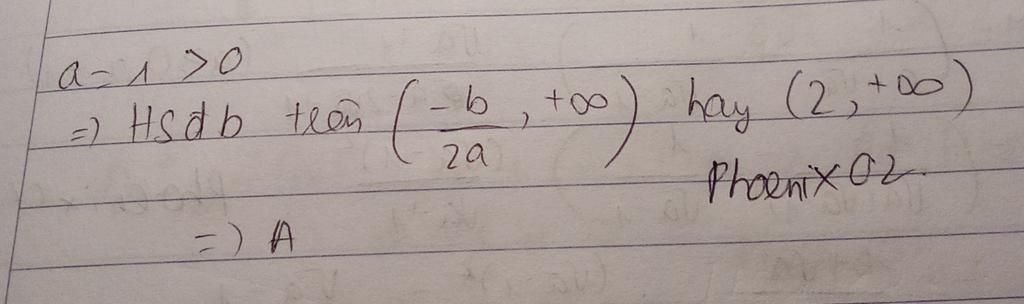 a = 1 > 0
=) Hsđb trên (-b/2a, +∞) hay (2, +∞)
Phoenix02
=) A